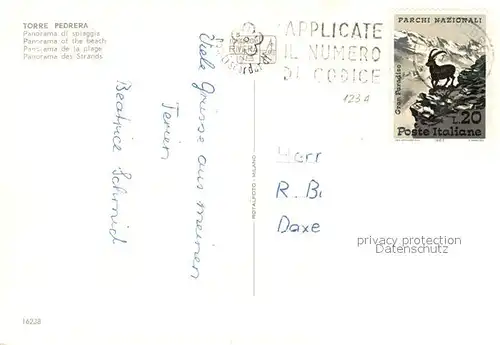 TORRE PEDRERA
Panorama di spiaggia
Panorama of the beach
Panorama de la plage
Panorama des Strands
RIVIERA
APPLICATE
IL NUMERO
DI CODICE
1234
PARCHI NAZIONALI
Gran Paradiso
L.20
Poste Italiane
Viele Grüsse aus meinen
Ferien
Beatrice Schmid
ROTALFOTO - MILANO
Herr
R. B
Daxe
privacy protection
Datenschutz
16238